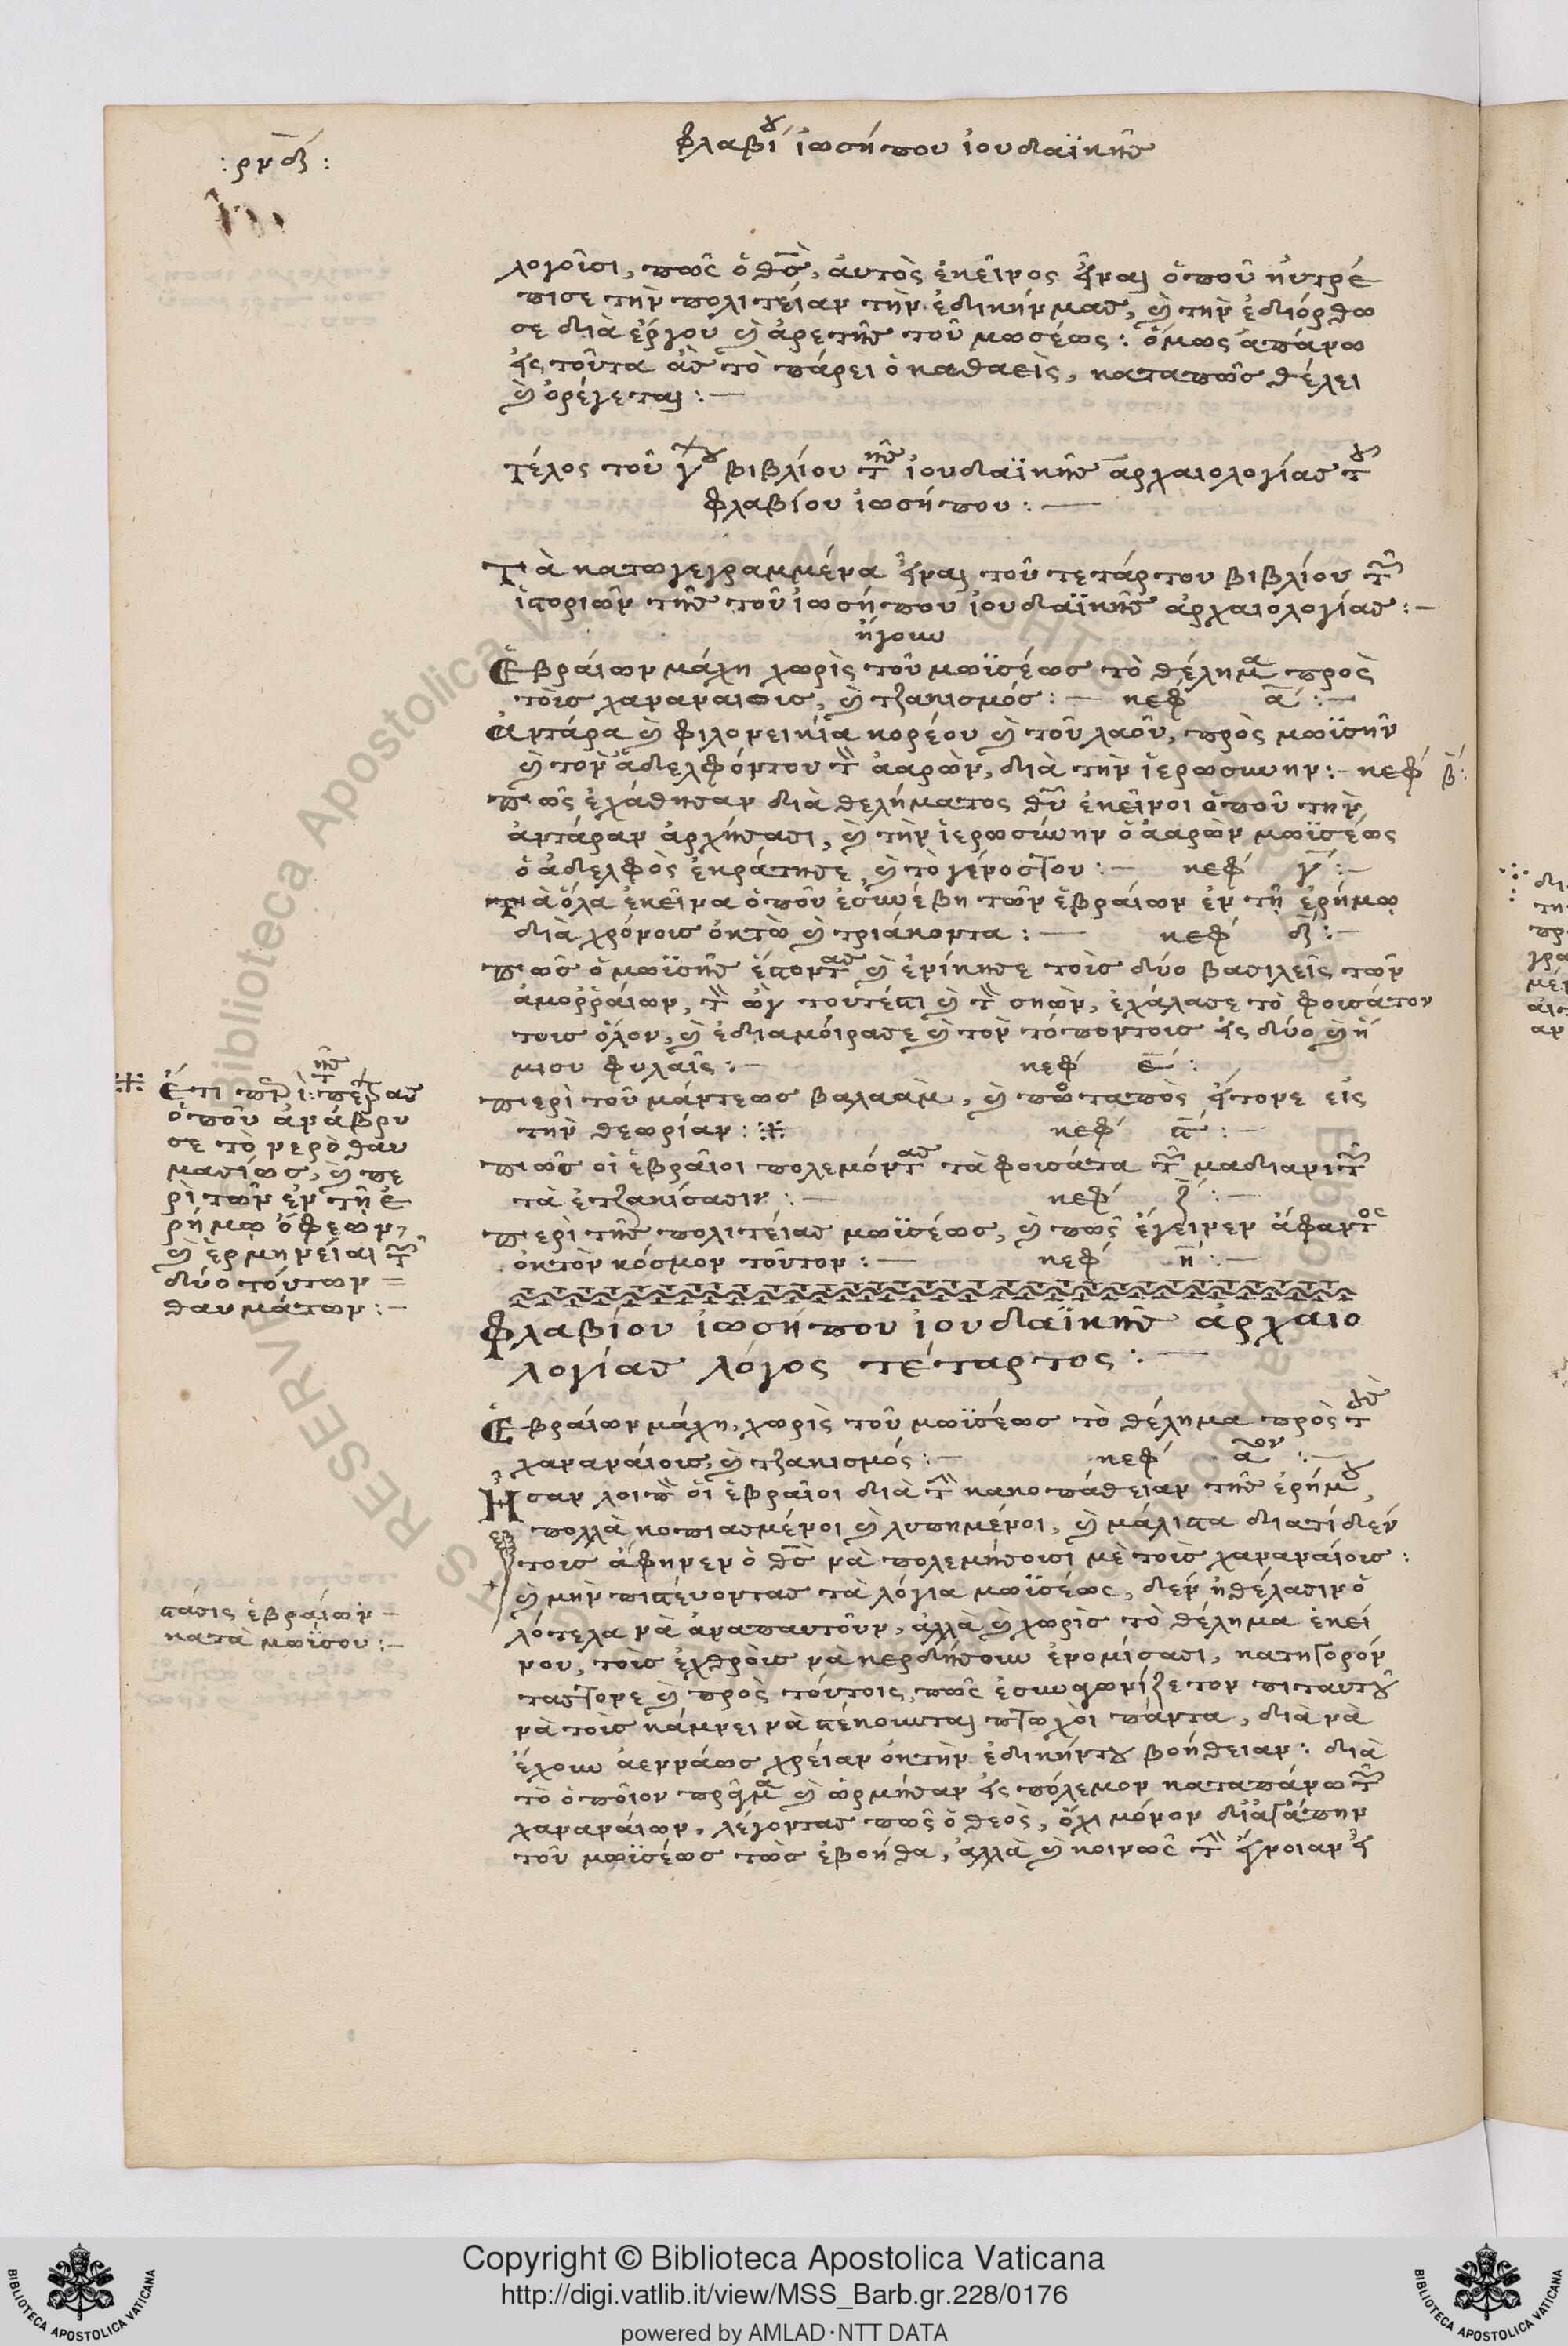 :ρνδ:
φλαβίου ἰωσήπου ἰουδαϊκῆς
λογοῦσι, πῶς ὁ θσ̅, αὐτὸς ἐκεῖνος εἶναι ὁποῦ ηὐτρέ
πισε τὴν πολιτείαν τὴν ἐδικήν μας, καὶ τὴν ἐδιόρθω
σε διὰ ἔργου καὶ ἀρετῆς τοῦ μωσέως: ὅμως ἀπάνω
εἰς τοῦτα ἂς τὸ πάρει ὁ καθαεὶς, καταπῶς θέλει
καὶ ὀρέγεται:—
τέλος τοῦ γ΄ου βιβλίου τῆς ἰουδαϊκῆς ἀρχαιολογίας τοῦ
φλαβίου ἰωσήπου:—
Τὰ κατωγεγραμμένα εἶναι τοῦ τετάρτου βιβλίου τῶν
ἱστοριῶν τῆς τοῦ ἰωσήπου ἰουδαϊκῆς ἀρχαιολογίας:—
ἤγουν
Ἑβραίων μάχη χωρὶς τοῦ μωϊσέως τὸ θέλημα πρὸς
τοὺς χαναναίους, καὶ τζακισμός:— κεφ΄ α:—
Ἀντάρα καὶ φιλονεικία κορέου καὶ τοῦ λαοῦ, πρὸς μωϊσῆν
καὶ τὸν ἀδελφόντου τὸν ἀαρὼν, διὰ τὴν ἱερωσύνην:— κεφ΄ β:
Πῶς ἐχάθησαν διὰ θελήματος θῦ ἐκεῖνοι ὁποῦ τὴν
ἀντάραν ἀρχήσασι, καὶ τὴν ἱερωσύνην ὁ ἀαρὼν μωϊσέως
ὁ ἀδελφὸς ἐκράτησε, καὶ τὸ γένοστου:— κεφ΄ γ:—
Τὰ ὅλα ἐκεῖνα ὁποῦ ἐσυνέβη τῶν ἑβραίων ἐν τῇ ἐρήμῳ
διὰ χρόνους ὀκτὼ καὶ τριάκοντα:— κεφ΄ δ:—
Πῶς ὁ μωϊσῆς ἔστοντας καὶ ἐνίκησε τοὺς δύο βασιλεῖς τῶν
ἀμοῤῥαίων, τὸν ὢγ τουτέστι καὶ τὸν σηὼν, ἐχάλασε τὸ φουσάτον
τους ὅλον, καὶ ἐδιαμοίρασε καὶ τὸν τόποντους εἰς δύο καὶ ἥ
μισυ φυλαῖς:— κεφ΄ ε:
Περὶ τοῦ μάντεως βαλαὰμ, καὶ ποταπὸς ἤτονε εἰς
τὴν θεωρίαν: ※ κεφ΄ ϛ:—
Πῶς οἱ ἑβραῖοι πολεμόντας τὰ φουσάτα τῶν μαδιανιτῶν
τὰ ἐτζακίσασιν:— κεφ΄ ζ:—
Περὶ τῆς πολιτείας μωϊσέως, καὶ πῶς ἔγεινεν ἄφαντος
ὀκτὸν κόσμον τοῦτον:— κεφ΄ η:—
※ Ἔτι περὶ τῆς πέτρας
ὁποῦ ἀνάβρυ
σε τὸ νερὸ θαυ
μασίως, καὶ πε
ρὶ τῶν ἐν τῇ ἐ
ρήμῳ ὄφεων,
καὶ ἑρμηνείαι τῶν
δύο τούτων =
θαυμάτων:—
Φλαβίου ἰωσήπου ἰουδαϊκῆς ἀρχαιο
λογίας λόγος τέταρτος:—
Ἑβραίων μάχη, χωρὶς τοῦ μωϊσέως τὸ θέλημα πρὸς τοὺς
χαναναίους, καὶ τζακισμός:— κεφ΄ αον:—
Ἦσαν λοιπὸν οἱ ἑβραῖοι διὰ τὴν κακοπάθειαν τῆς ἐρήμου,
πολλὰ κοπιασμένοι καὶ λυπημένοι, καὶ μάλιστα διατὶ δὲν
τους ἄφηνεν ὁ θσ̅ νὰ πολεμήσουσι μὲ τοὺς χαναναίους:
καὶ μὴν πιστεύοντας τὰ λόγια μωϊσέως, δὲν ἠθέλασιν ὁ
λότελα νὰ ἀναπαυτοῦν, ἀλλὰ καὶ χωρὶς τὸ θέλημα ἐκεί
νου, τοὺς ἐχθροὺς νὰ κερδήσουν ἐνομίσασι, κατηγορόν
τας τονε καὶ πρὸς τούτοις, πῶς ἐσυφωνίζετον πιταυτοῦ
νὰ τοὺς κάμνει νὰ στέκουνται πτωχοὶ πάντα, διὰ νὰ
ἔχουν ἀεννάως χρείαν ὀκτὴν ἐδικήντου βοήθειαν: διὰ
τὸ ὁποῖον πρᾶγμα καὶ ὁρμῆσαν εἰς πόλεμον καταπάνω τῶν
χαναναίων, λέγοντας πῶς ὁ θεὸς, ὄχι μόνον δι᾽ ἀγάπην
τοῦ μωϊσέως τὼς ἐβοήθα, ἀλλὰ καὶ κοινῶς τὴν ἔγνοιαν εἰ
στάσις ἑβραίων—
κατὰ μωϊσου:—
Copyright © Biblioteca Apostolica Vaticana
http://digi.vatlib.it/view/MSS_Barb.gr.228/0176
powered by AMLAD·NTT DATA
BIBLIOTECA APOSTOLICA VATICANA
BIBLIOTECA APOSTOLICA VATICANA